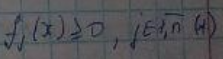 f_j(x) ≥ 0, j∈1,n̅ (4)